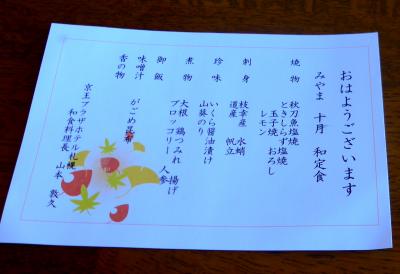 おはようございます
みやま 十月 和定食
焼物 秋刀魚塩焼
ときしらず塩焼
玉子焼 おろし
レモン
刺身 枝幸産 水蛸
道産 帆立
珍味 いくら醤油漬け
山葵のり
煮物 大根 鶏つみれ 揚げ
ブロッコリー 人参
御飯
味噌汁 がごめ昆布
香の物
京王プラザホテル札幌
和食料理長 山本 敦久